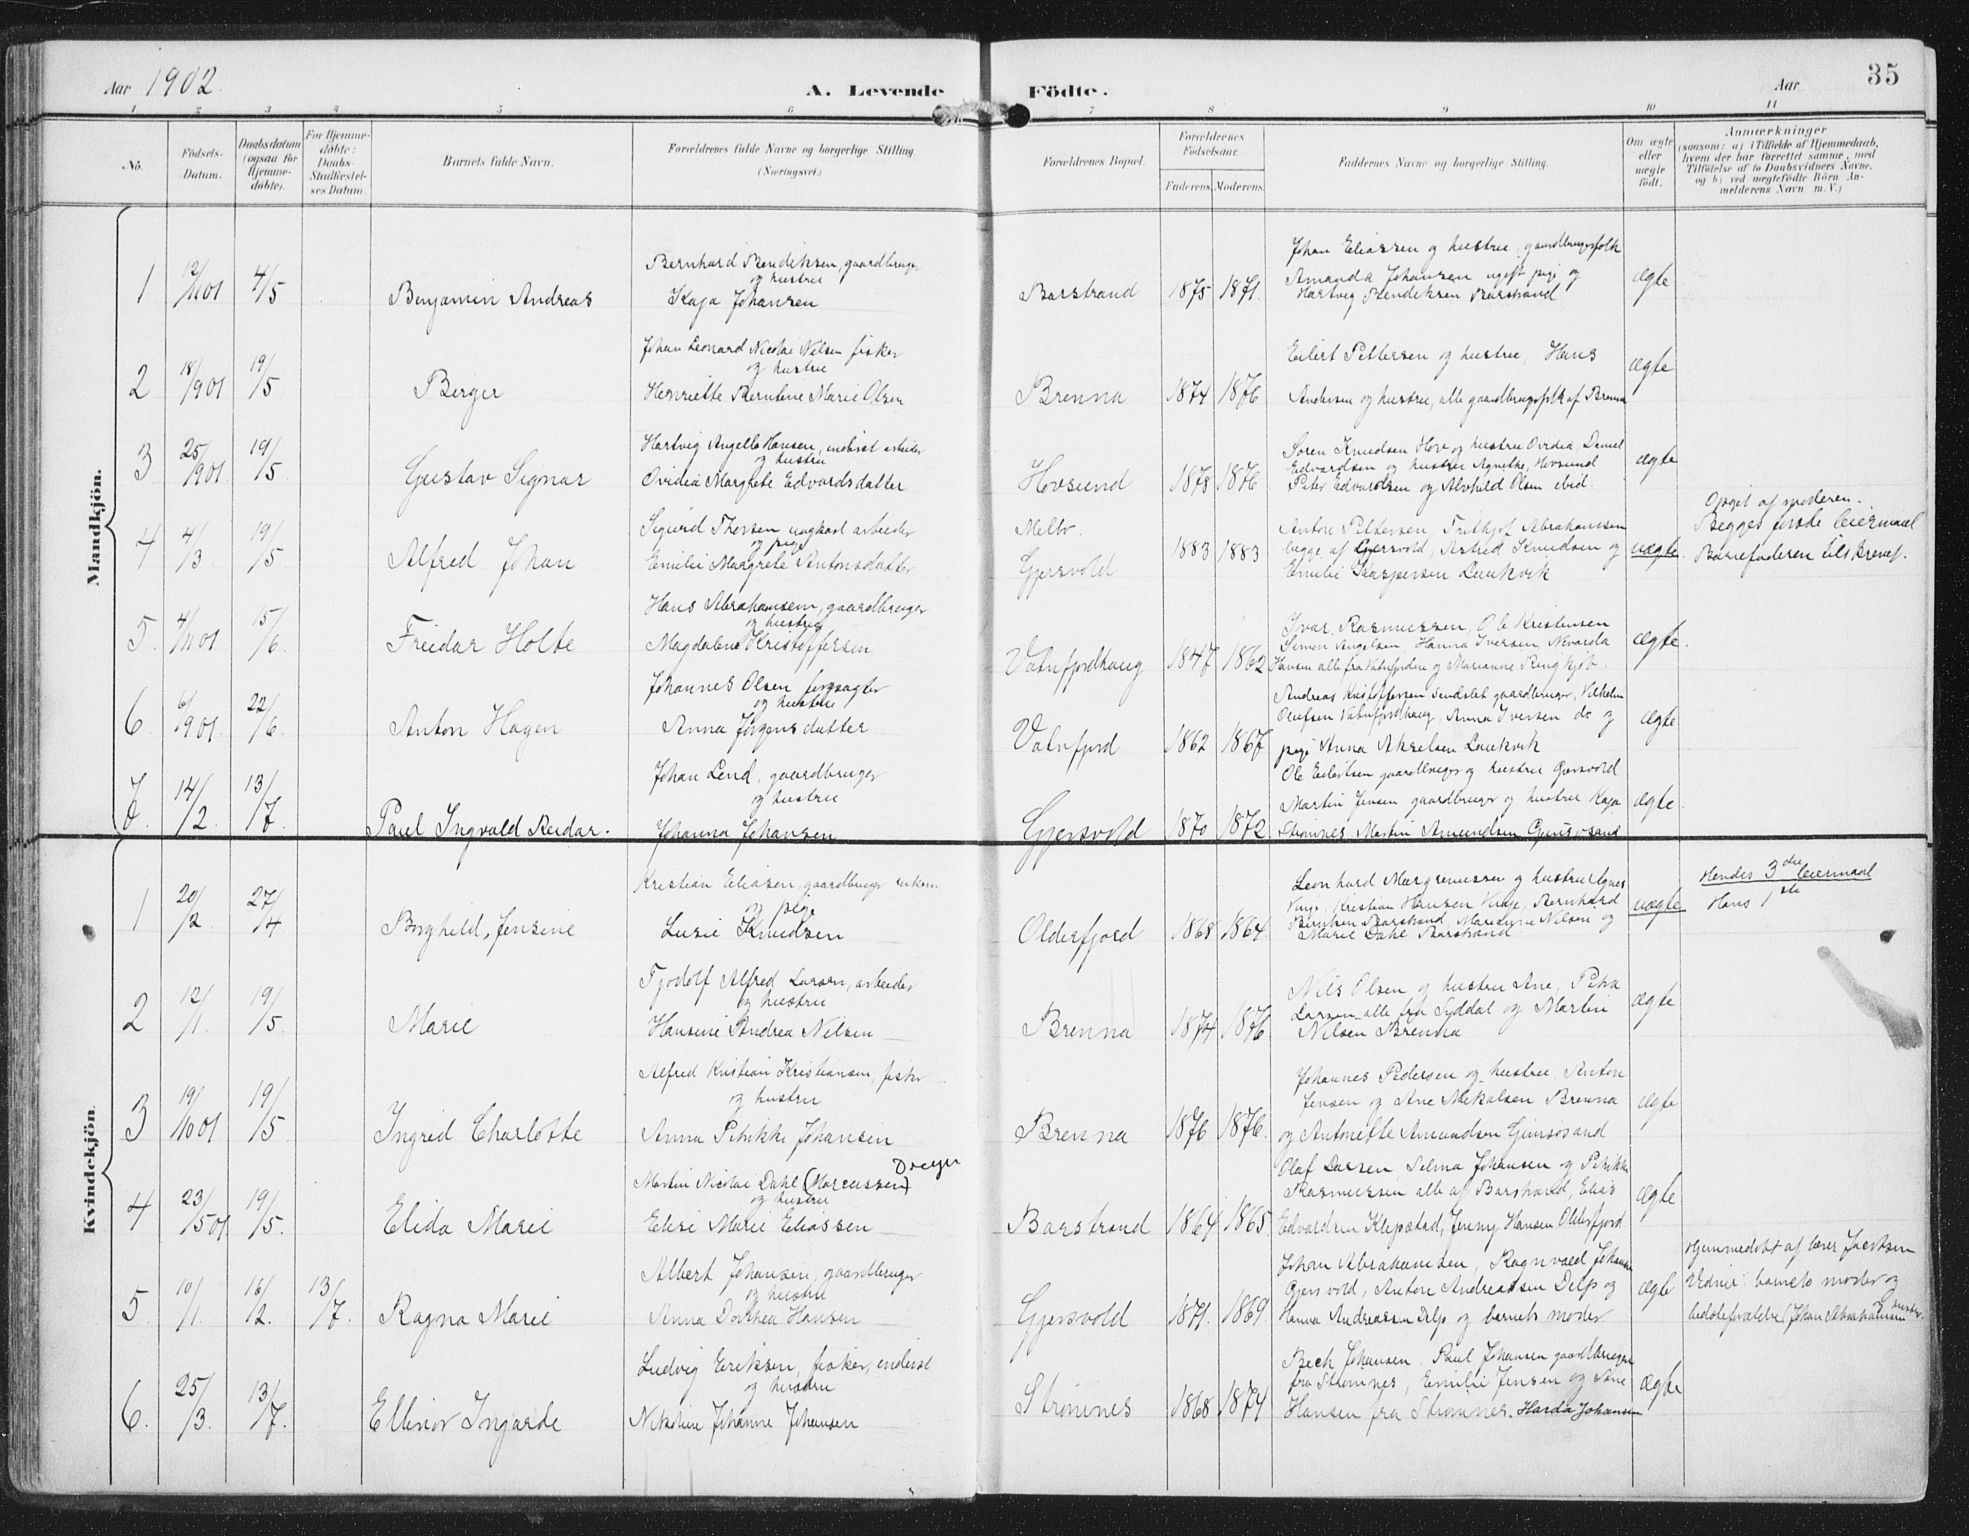 Aar 1902. A. Levende Födte. Aar 35
1 2 3 4 5 6 7 8 9 10 11
No. Födsels-Datum. Daabsdatum (ogsaa for Hjemme-döbte). For Hjemme-döbte: Daabs-Stadfæstel-ses Datum. Barnets fulde Navn. Forældrenes fulde Navne og borgerlige Stilling. (Næringsvei.) Forældrenes Bopæl. Forældrenes Födselsaar. Faderens. Moderens. Faddernes Navne og borgerlige Stilling. Om ægte eller uægte födt. Anmærkninger
(saasom: a) i Tilfælde af Hjemmedaab,
hvem der har forrettet samme, med
Tilföielse af to Daabsvidners Navne,
og b) ved uægtefödte Börn An-
melderens Navn m. V.)
Mandkjön.
Bernhard Bendiksen, gaardbruger
og hustru
Johan Eliassen og hustru, gaardbrugerfolk
1 12/11 01 4/5 Benjamin Andreas Kaja Johansen Barstrand 1875 1871. Amanda Johansen ugift pige og ægte
Hartvig Bendiksen Barstrand
Johan Leonard Nicolai Nilsen fisker
og hustru
Eilert Pettersen og hustru, Hans
2 18/9 01 19/5 Berger Henriette Berntine Marie Olsen Brenna 1874 1876 Andersen og hustru, alle gaardbrugerfolk af Brenna ægte
Hartvig Angell Hansen, arbeider
og hustru
Søren Knudsen Hov og hustru Ovidia, Daniel
3 25/9 01 19/5 Gustav Signar Ovidia Margrete Edvardsdatter Hovsund 1878 1876 Edvardsen og hustru Agnethe, Hovsund ægte
Peter Edvardsen og Alvhild Olsen ibid.
Sigurd Thorsen ungkarl arbeider
og pige
Melbo.
Anton Pettersen, Frithjof Abrahamsen
Opgit af moderen.
4 4/3 19/5 Alfred Johan Emilie Margrete Antonsdatter Gjersvold 1883 1883 begge af Gjersvold, Astrid Knudsen og uægte. Begges første leiermaal
Emilie Kaspersen Laukvik
Barnefaderen
Hans Abrahamsen, gaardbruger
og hustru
Ivar Rasmussen, Ole Kristensen
5. 4/11 01 15/6. Freidar Holte Magdalene Kristoffersen Vatnfjordhaug 1847 1862 Simon Angelsen, Hanna Iversen, ægte.
Hansen alle fra Vatnfjorden og Marianne
Johannes Olsen
og hustru
Andreas Kristoffersen gaardbruger, Vilhelm
6. 6/9 01. 22/6. Anton Hagen Anna Jørgensdatter Vatnfjord 1862 1867 Olufsen Vatnfjordhaug, Anna Iversen do og ægte
pige Anna Akselsen Laukvik
Johan Lend, gaardbruger
og hustru
Ole Eilertsen gaardbruger og hustru Gjersvold
7. 14/2. 13/7. Paul Ingvald Reidar. Johanna Johansen Gjersvold 1870 1872. Martin Jensen gaardbruger og hustru Kaja ægte.
Strømnes Martin Amundsen Gimsøsand
Kvindekjön.
Kristian Eliasen, gaardbruger enkem.
og pige
Leonhard Mar og hustru Agnes
Hendes 3die leiermaal
1 20/2. 27/4 Borghild, Jensine Lusie Knudsen Olderfjord 1868 1864. Kristian Hansen Bernhard uægte Hans 1ste
Barstrand, Nilsen og
Marie Dahl Barstrand
Fjodolf Alfred Larsen, arbeider
og hustru
Nils Olsen og hustru Ane, Petra
2 12/1. 19/5. Marie Hansine Andrea Nilsen Brenna 1874 1876. Larsen alle fra Syddal og Martin ægte
Nilsen Brenna
Alfred Kristian Kristiansen, fisker
og hustru
Johannes Pedersen og hustru, Anton
3 19/10 01 19/5 Ingrid Charlotte Anna Petrikke Johansen Brenna 1876 1876. Jensen og Ane Mikalsen Brenna ægte
og Antonette Amundsen Gimsøsand
Martin Nicolai Dahl (Marcussen) Dreyer
og hustru
Olaf Larsen Selma Johansen og Petrikke
4 23/5 01. 19/5. Elida Marie Elise Marie Eliassen Barstrand 1864 1865. Rasmussen alle af Barstrand, Elias ægte
Edvardsen Klepstad, Jenny Hansen Olderfjord
Albert Johansen, gaardbruger
og hustru
Johan Abrahamsen, Ragnvald Johansen
Hjemmedøbt af lærer
5. 10/1. 16/2. 13/7. Ragna Marie Anna Dorthea Hansen Gjersvold 1871. 1869. Gjersvold, Anton Andreassen Delp og ægte Vidner: barnets moder og
Hanna Andreassen Delp og barnets moder
bedsteforældre (Johan Abrahamsen og hustru
Ludvig Eriksen, fisker, inderst
og hustru
Bech Johansen, Paul Johansen gaardbruger
6. 25/3. 13/7. Ellinor Ingarde Nikoline Johanne Johansen Strømnes 1868 1874 fra Strømnes, Emilie Jensen og Ane ægte
Hansen fra Strømnes. Harda Johansen